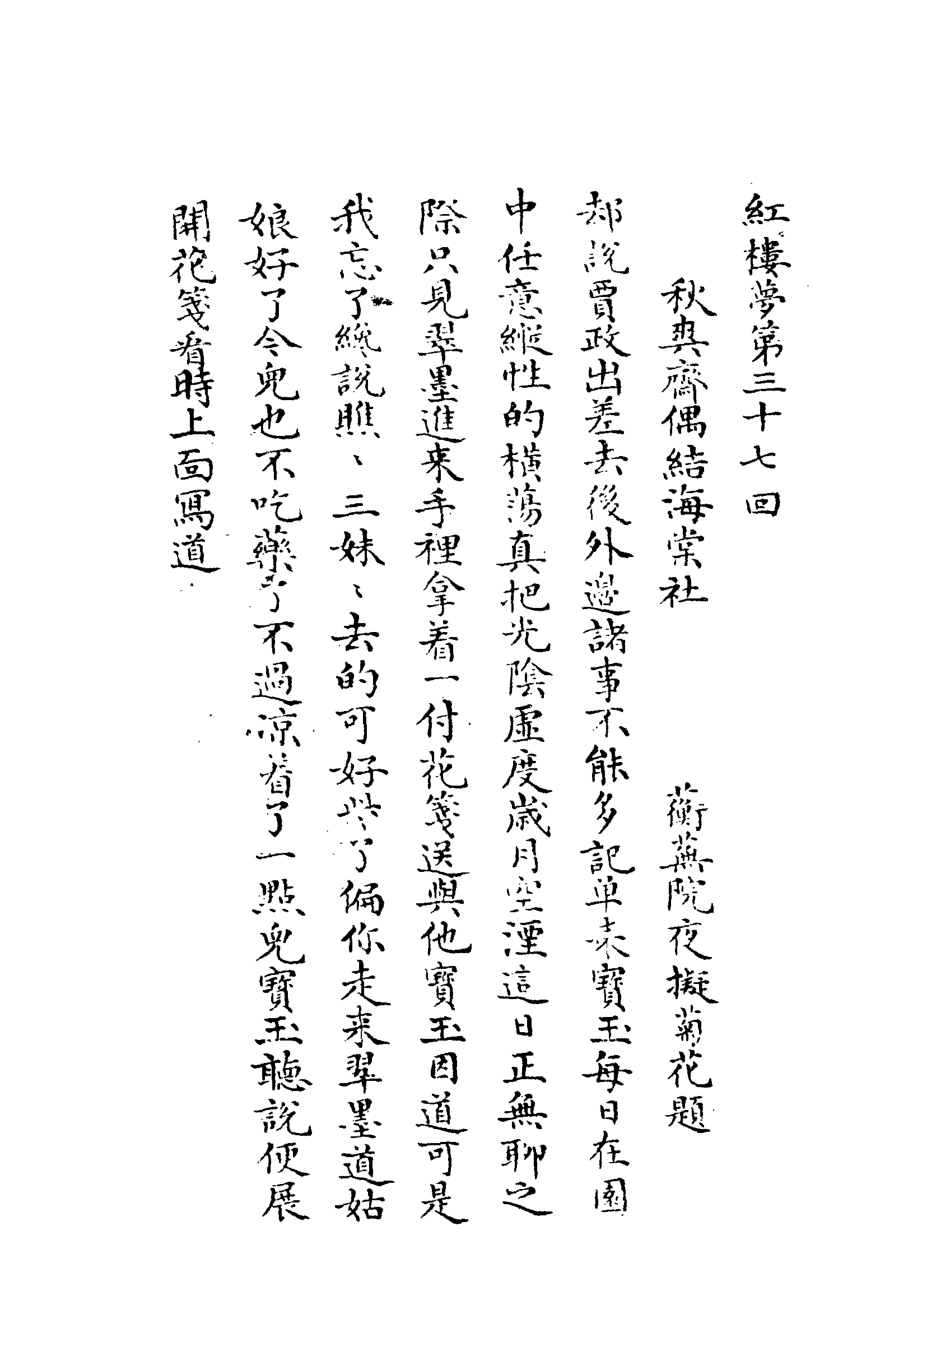 紅樓夢第三十七回
秋爽齋偶結海棠社　蘅蕪院夜擬菊花題
却說賈政出差去後外邊諸事不能多記单表寶玉每日在園
中任意縱性的横蕩真把光陰虛度歲月空湮這日正無聊之
際只見翠墨進来手裡拿着一付花箋送與他寶玉因道可是
我忘了纔說瞧、三妹、去的可好些了偏你走来翠墨道姑
娘好了今兒也不吃藥了不過凉着了一點兒寶玉聽說便展
開花箋看時上面寫道